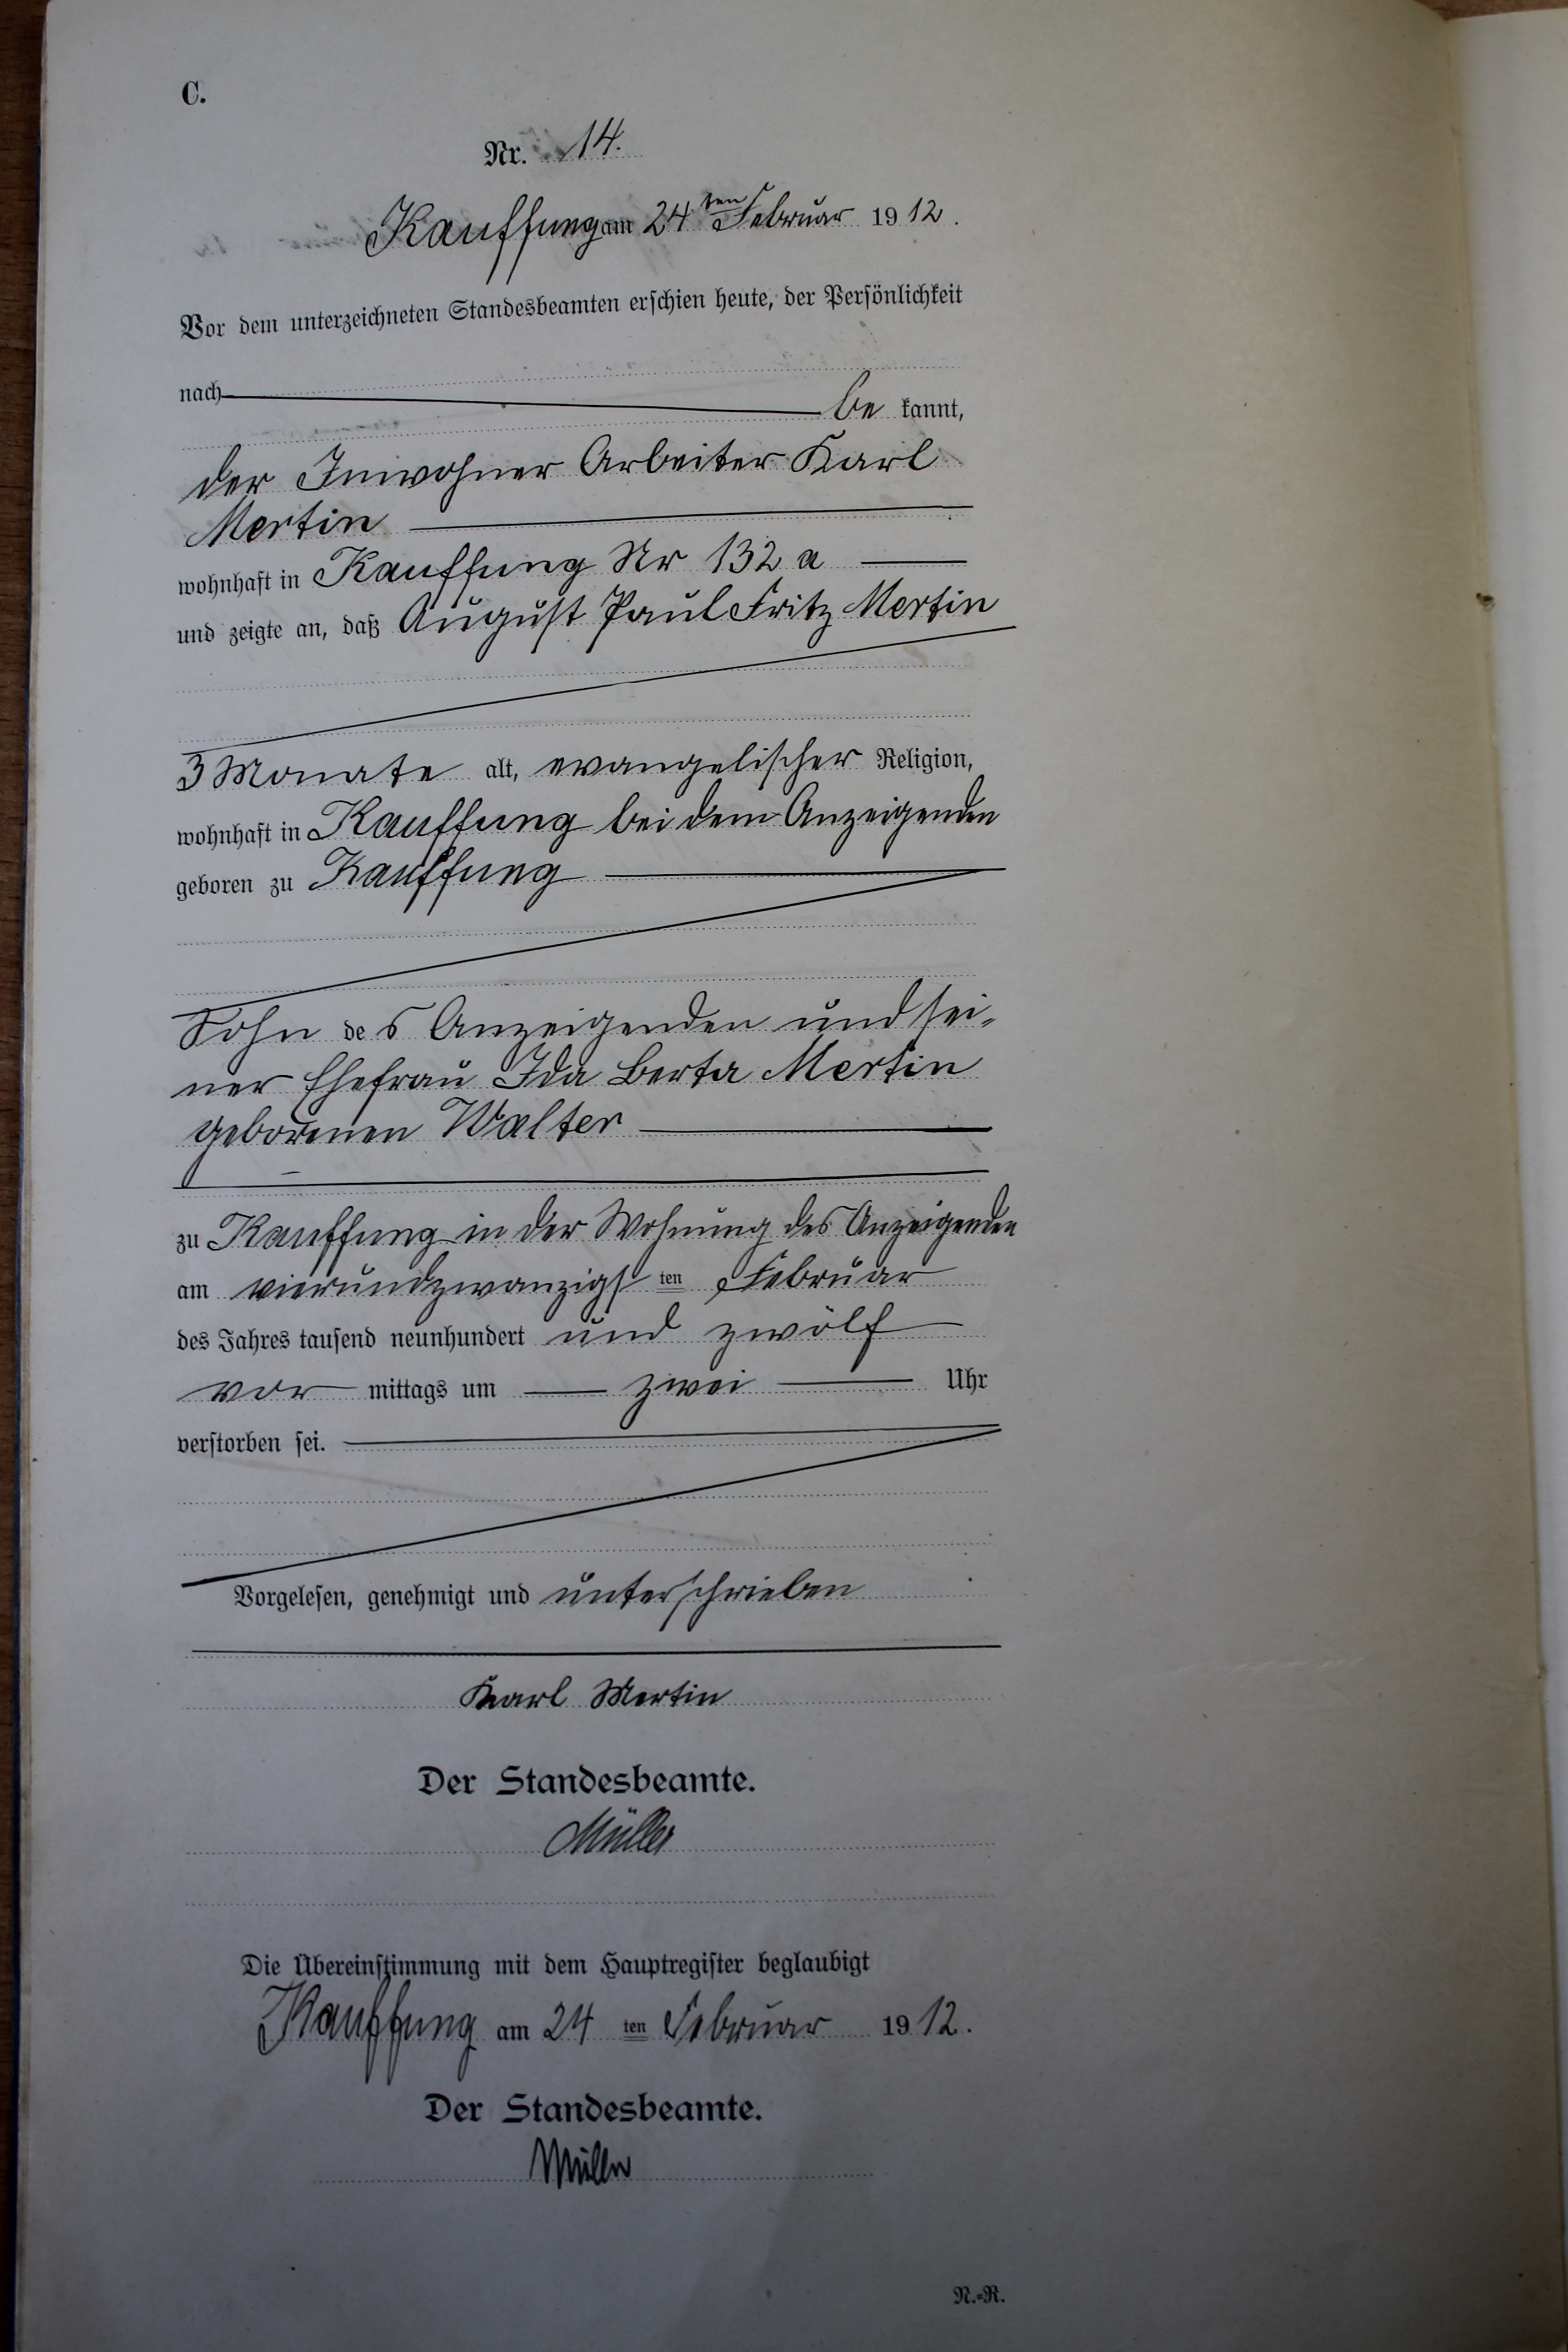 C.
Nr. 14.
Kauffung am 24ten Februar 1912.
Vor dem unterzeichneten Standesbeamten erschien heute, der Persönlichkeit
nach
be kannt,
der Inwohner Arbeiter Karl
Mertin
wohnhaft in Kauffung Nr 132 a
und zeigte an, daß August Paul Fritz Mertin
3 Monate alt, evangelischer Religion,
wohnhaft in Kauffung bei dem Anzeigenden
geboren zu Kauffung
Sohn des Anzeigenden und sei-
ner Ehefrau Ida Berta Mertin
geborenen Walter
zu Kauffung in der Wohnung des Anzeigenden
am vierundzwanzigsten Februar
des Jahres tausend neunhundert und zwölf
vor mittags um zwei Uhr
verstorben sei.
Vorgelesen, genehmigt und unterschrieben
Karl Mertin
Der Standesbeamte.
Müller
Die Übereinstimmung mit dem Hauptregister beglaubigt
Kauffung am 24 ten Februar 1912.
Der Standesbeamte.
Müller
N.=R.